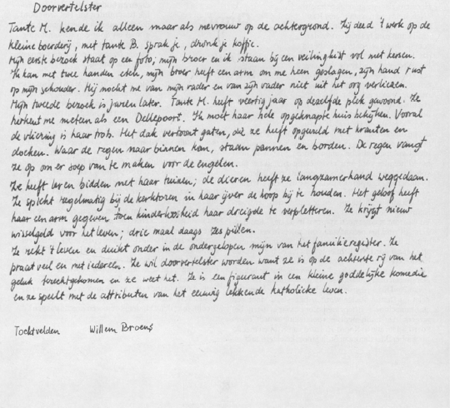 Doorvertelster
Tante M. kende ik alleen maar als mevrouw op de achtergrond. Zij deed 't werk op de
kleine boerderij, met tante B. sprak je, dronk je koffie.
Mijn eerste bezoek staat op een foto, mijn broer en ik staan bij een veilingkist vol met kersen.
Ik kan met twee handen eten, mijn broer heeft een arm om me heen geslagen, zijn hand rust
op mijn schouder. Hij mocht me van mijn vader en van zijn vader niet uit het oog verliezen.
Mijn tweede bezoek is jaren later. Tante M. heeft veertig jaar op dezelfde plek gewoond. Ze
herkent me meteen als een Dellepoort. Ik moet haar hele opgeknapte huis bekijken. Vooral
de vliering is haar trots. Het dak vertoont gaten, die ze heeft opgevuld met kranten en
doeken. Waar de regen naar binnen kan, staan pannen en borden. De regen vangt
ze op om er soep van te maken voor de engelen.
Ze heeft leren bidden met haar tuinen; de dieren heeft ze langzamerhand weggedaan.
Ze spiekt regelmatig bij de kerktoren in haar ijver de hoop bij te houden. Het geloof heeft
haar een arm gegeven toen kinderloosheid haar dreigde te verpletteren. Ze krijgt nieuw
wisselgeld voor het leven; drie maal daags zes pillen.
Ze rekt 't leven en duikt onder in de ondergelopen mijn van het familieregister. Ze
praat veel en met iedereen. Ze wil doorvertelster worden want ze is op de achterste rij van het
geluk terechtgekomen en ze weet het. Ze is een figurant in een kleine goddelijke komedie
en ze speelt met de attributen van het eeuwig lekkende katholieke leven.
Tochtvelden Willem Broens